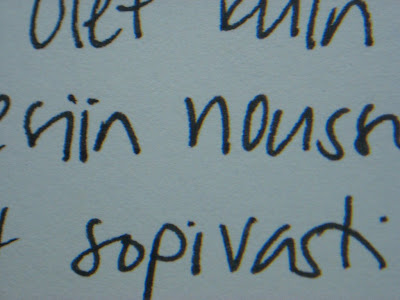 Olet kuin
eriin nouss
t sopivasti